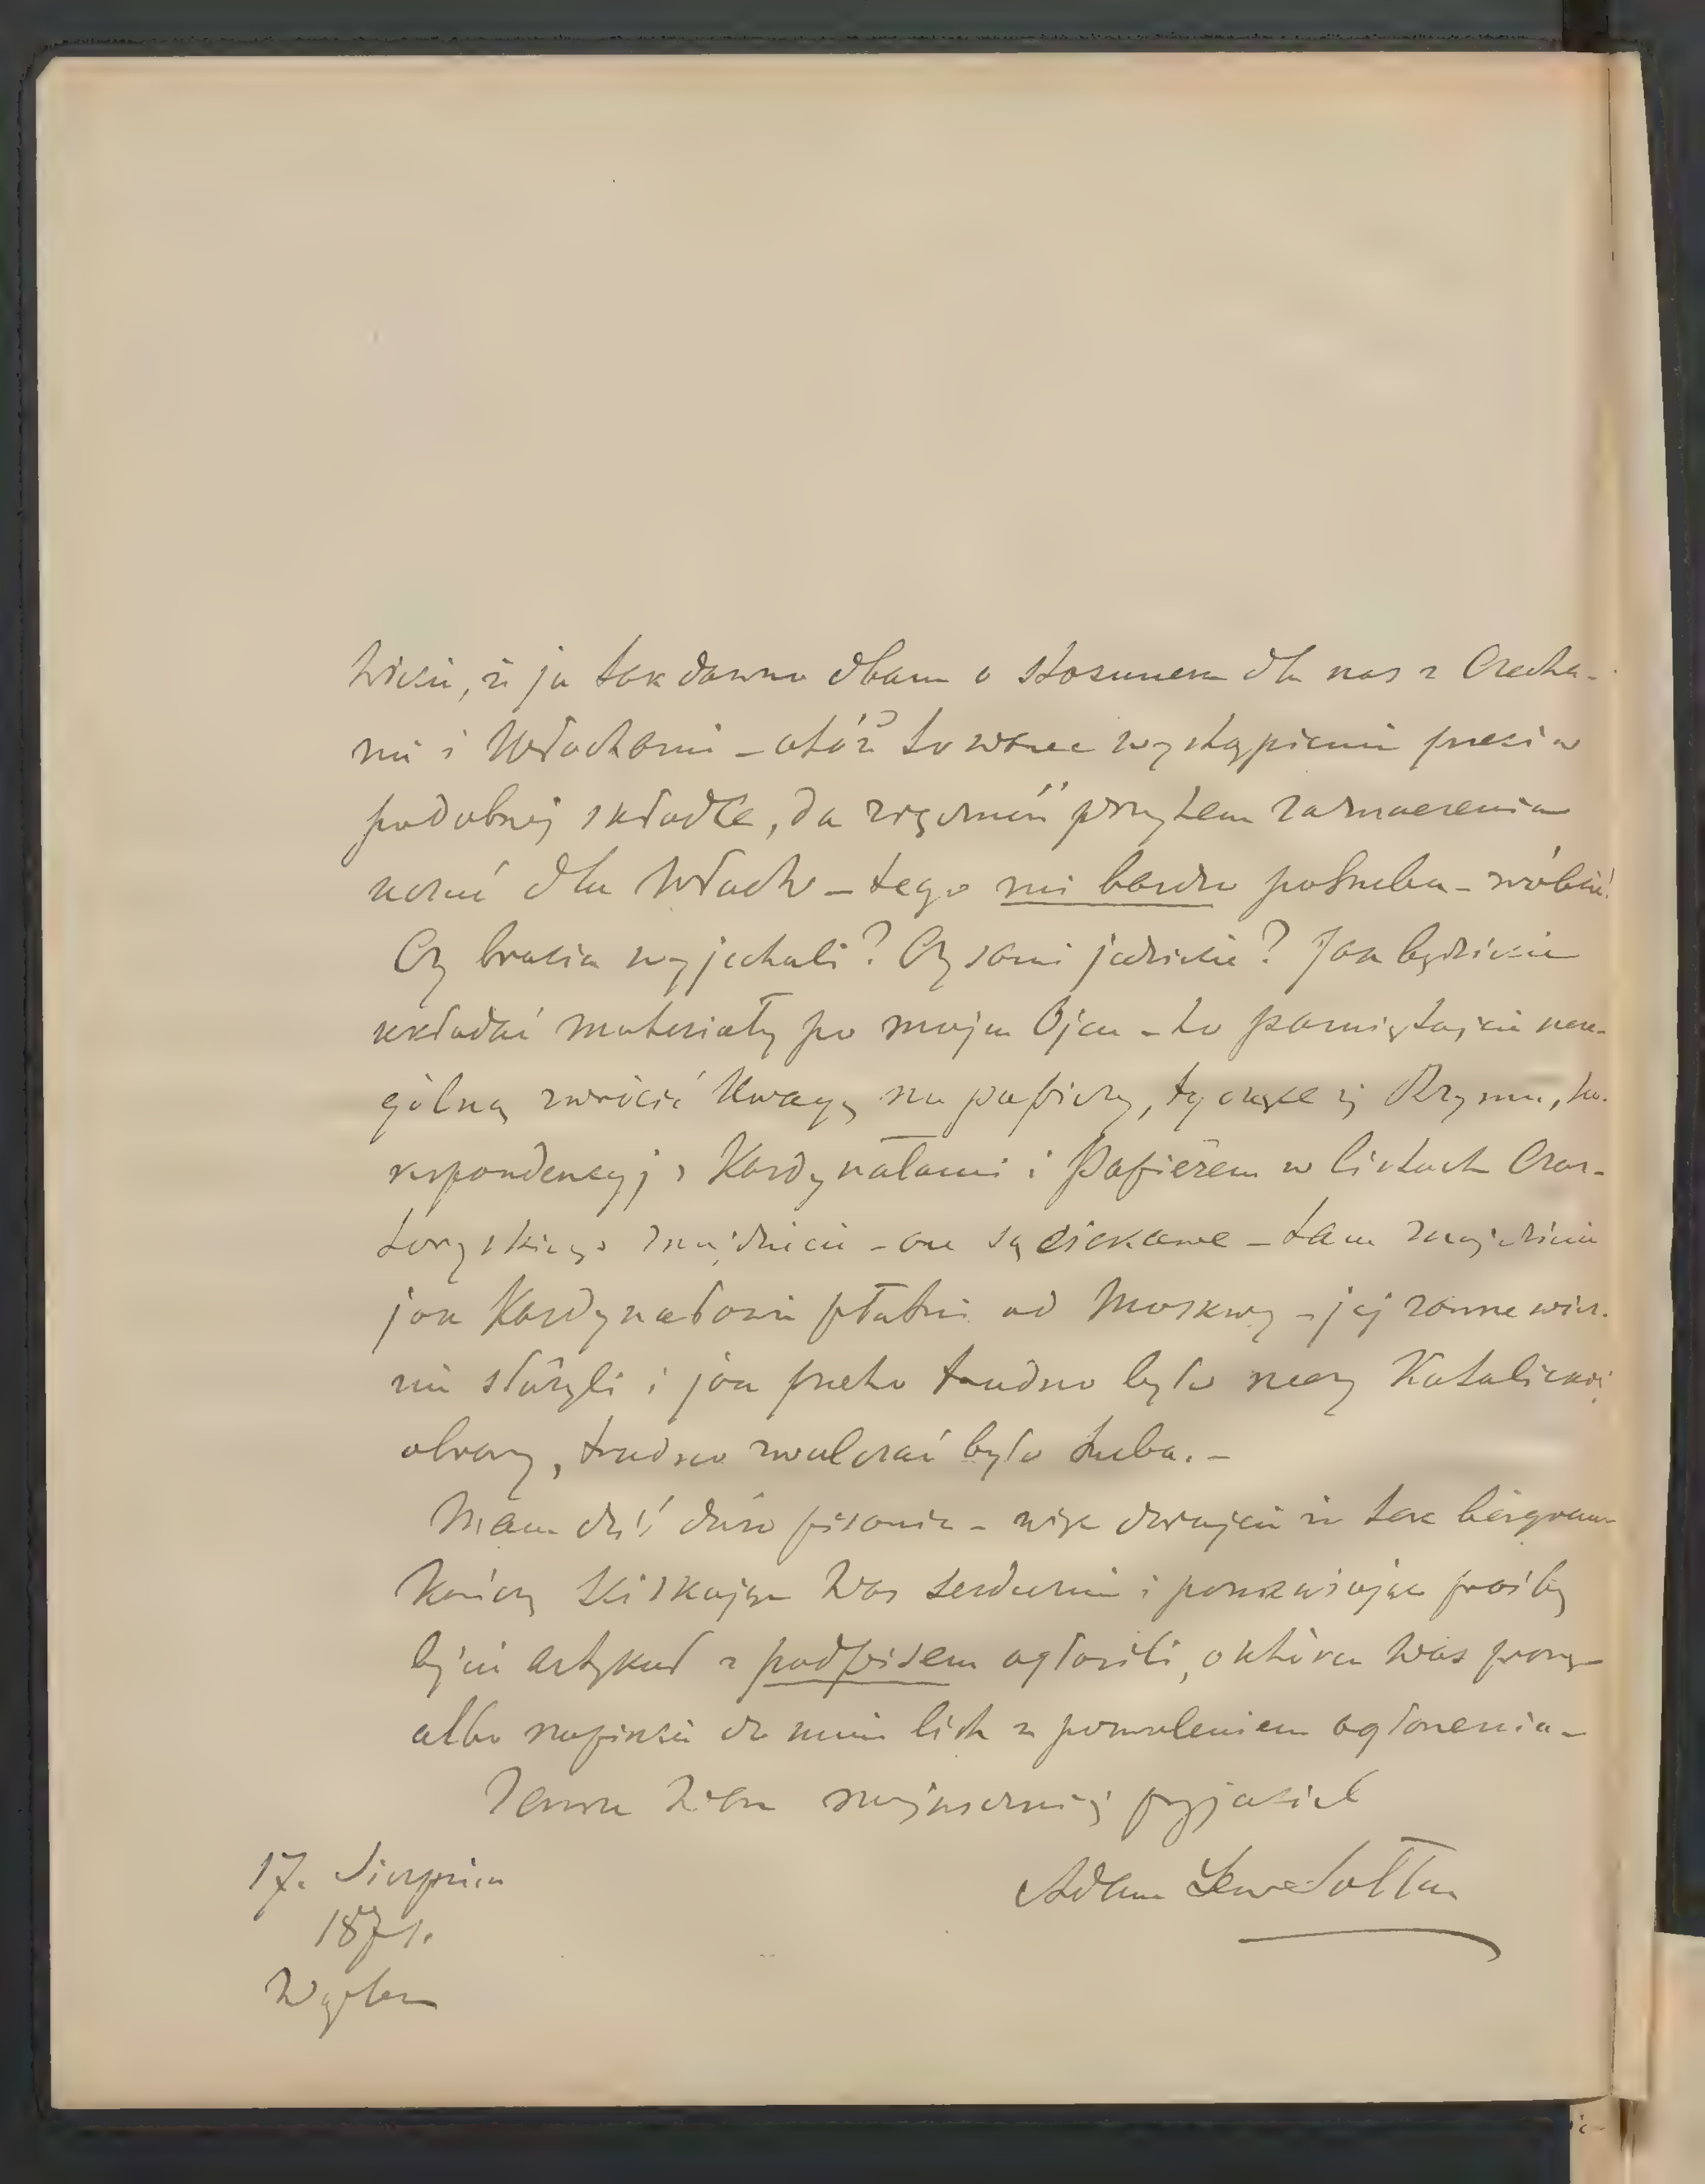 Wiecie, że ja tak dawno dbam o stosunek dla nas z Czecha-
mi i Włochami – otóż to wasze wystąpienie przeciw
podobnej składce, da zręczność przytem zaznaczenia
uczuć dla Włoch – tego mi bardzo potrzeba – zróbcie!
Czy bracia wyjechali? Czy sami jedziecie? Jak będziecie
układać materiały po moim Ojcu – to pamiętajcie szcze-
gólną zwrócić uwagę na papiery, tyczące się Rzymu, ko-
respondencyj z Kardynałami i Papieżem w listach Czar-
toryskiego znajdziecie – one są ciekawe – tam znajdziecie
jak Kardynałowie płatni od Moskwy – jej zawsze wier-
nie służyli i jak przeto trudno było rzeczy Katolickiej
obrony, trudno zwalczać było trzeba. –
Mam dziś dużo pisania – więc darujcie że tak bazgram
Kończę ściskając Was serdecznie i ponawiając prośbę
byście artykuł z podpisem ogłosili, o który Was proszę
albo napiszcie do mnie list z pozwoleniem ogłoszenia –
Zawsze Wam najszczerszy przyjaciel
Adam Lew Sołtan
17. Sierpnia
1871.